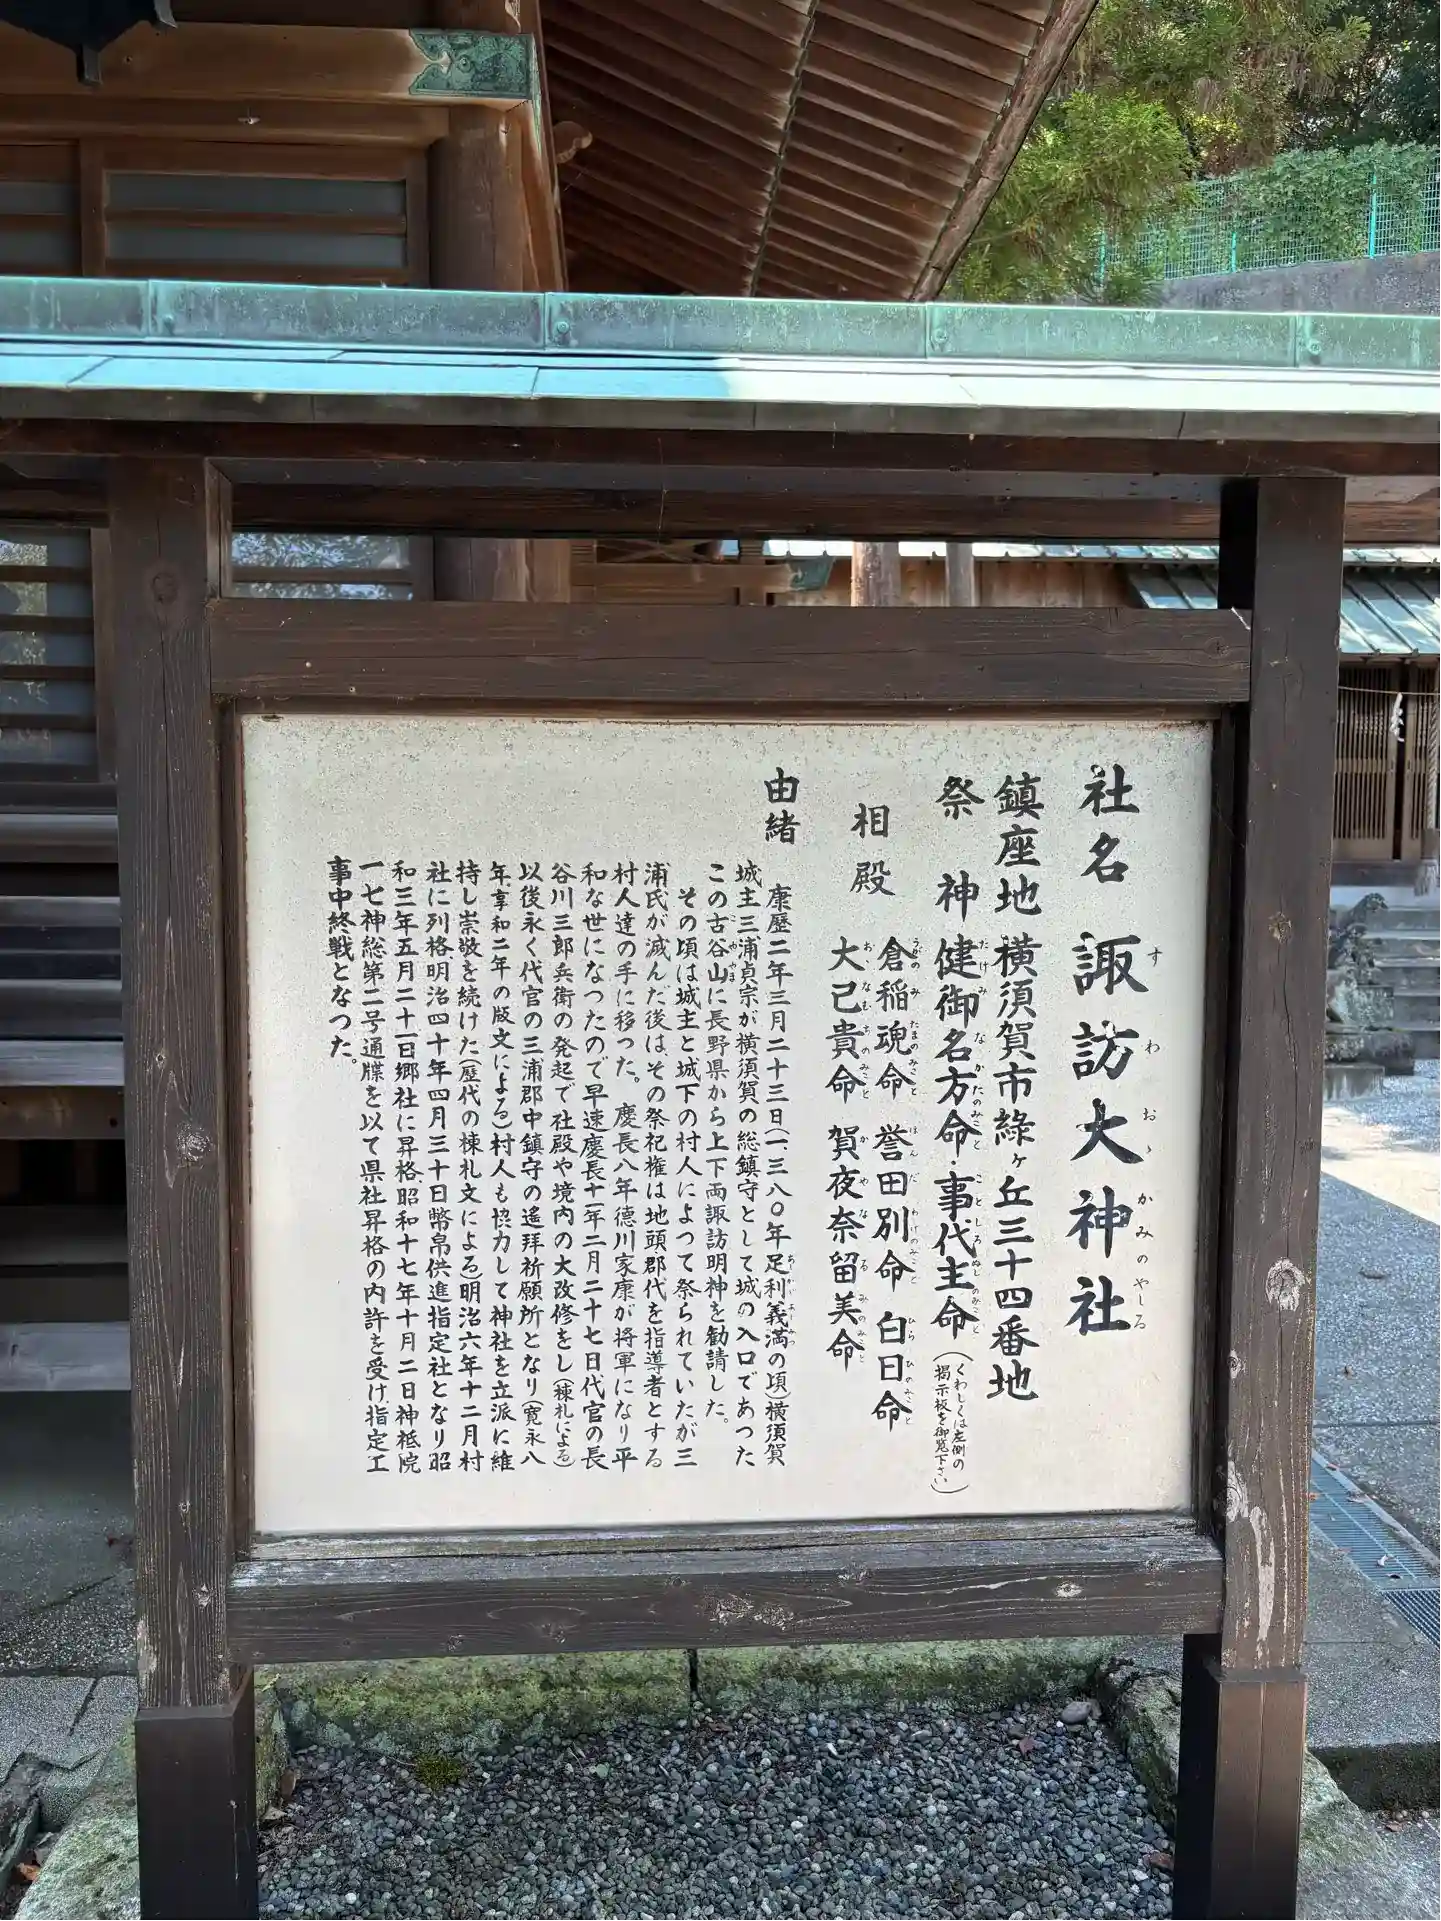 社名 諏訪大神社
すわおゝかみのやしろ
鎮座地 横須賀市緑ヶ丘三十四番地
祭神 健御名方命・事代主命(くわしくは左側の掲示板を御覧下さい)
たけみなかたのみこと ことしろぬしのみこと
相殿 倉稲魂命 誉田別命 白日命
うがのみたまのみこと ほんだわけのみこと ひらひのみこと
大己貴命 賀夜奈留美命
おゝなむちのみこと かやなるみのみこと
由緒
康歴二年三月二十三日(一、三八〇年足利義満の頃)横須賀
あしかがよしみつ
城主三浦貞宗が横須賀の総鎮守として城の入口であつた
この古谷山に長野県から上下両諏訪明神を勧請した。
その頃は城主と城下の村人によつて祭られていたが三
浦氏が滅んだ後は、その祭祀権は地頭郡代を指導者とする
村人達の手に移つた。慶長八年徳川家康が将軍になり平
和な世になつたので早速慶長十一年二月二十七日代官の長
谷川三郎兵衛の発起で社殿や境内の大改修をし(棟札による)
以後永く代官の三浦郡中鎮守の遙拜祈願所となり(寛永八
年、享和二年の版文による)村人も協力して神社を立派に維
持し崇敬を続けた(歴代の棟札文による)明治六年十二月村
社に列格、明治四十年四月三十日幣帛供進指定社となり昭
和三年五月二十一日郷社に昇格、昭和十七年十月二日神祇院
一七神総第二号通牒を以て県社昇格の内許を受け指定工
事中終戦となつた。